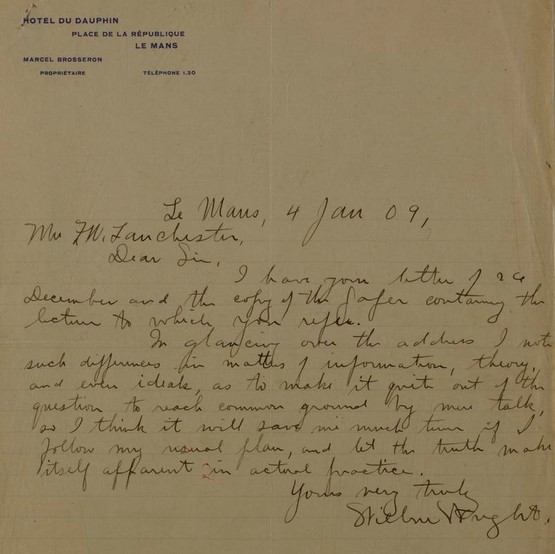 HOTEL DU DAUPHIN
PLACE DE LA RÉPUBLIQUE
LE MANS
MARCEL BROSSERON
PROPRIÉTAIRE
TÉLÉPHONE 1.30
Le Mans, 4 Jan 09,
Mr F.W. Lanchester,
Dear Sir,
I have your letter of
December and the copy of the paper containing the
lecture to which you refer.
In glancing over the address I note
such differences in matters of information, theory,
and even ideals, as to make it quite out of the
question to reach common ground by mere talk,
so I think it will save me much time if I
follow my usual plan, and let the truth make
itself apparent in actual practice.
Yours very truly
Wilbur Wright.